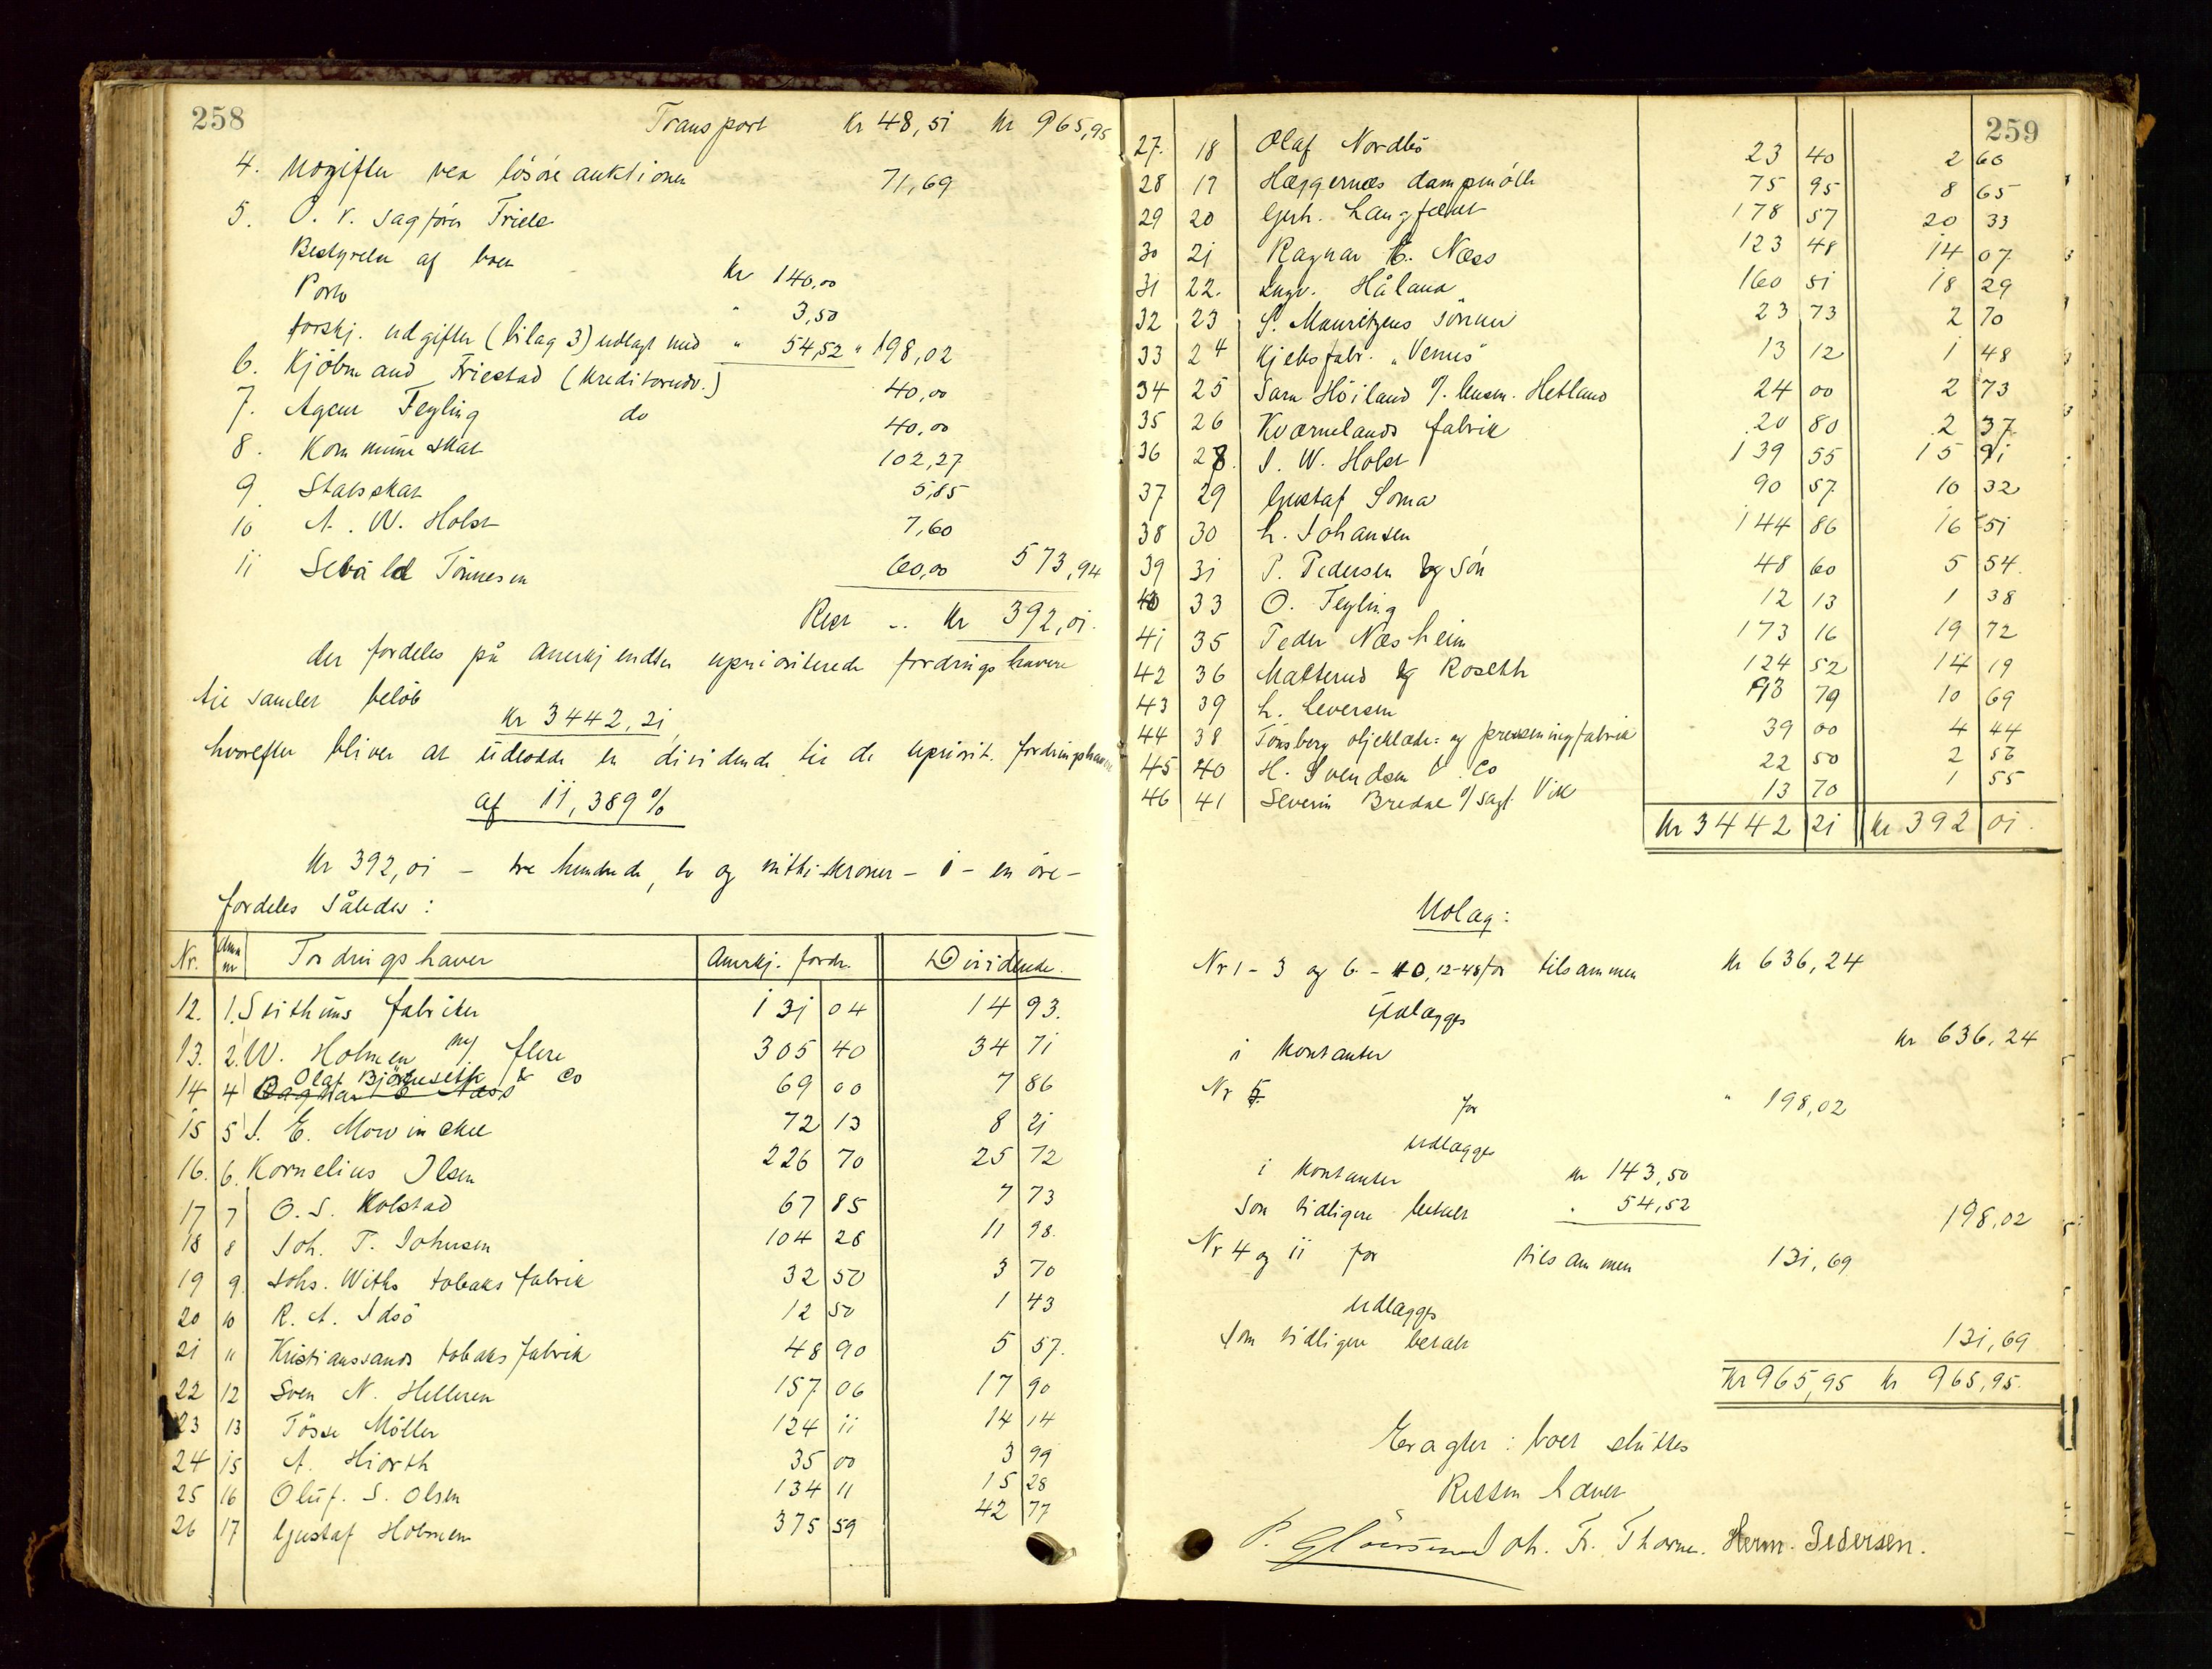 258
Transport Kr 48,51 Kr 965,95
4. Udgifter ved lösöre auktionen 71,69
5. O. r. sagförer Friele
Bestyrelse af boet Kr 140,00
Porto " 3,50
forskj. udgifter (bilag 3) udlagt med " 54,52 " 198,02
6. Kjöbmand Friestad (kreditorudv.) 40,00
7. Agent Feyling do 40,00
8. Kommuneskat 102,27
9. Statsskat 5,85
10 A. W. Holst 7,60
11 Sebald Tönnesen 60,00 573,94
Rest .. Kr 392,01.
der fordeles på anerkjendte uprioriterede fordringshavere
til samlet belöb
Kr 3442,21
hvorefter bliver at udlodde en dividende til de upriorit. fordringshavere
af 11,389 %
Kr 392,01 – tre hundrede, to og nitti kroner – 1 – en öre –
fordeles således:
Nr. Anm nr Fordringshaver Anerkj. fordr. Dividende.
12. 1. Svithuns fabriker 131 04 14 93.
13. 2. W. Holmen mfl flere 305 40 34 71
14 4 Olaf Björnseth & Co 69 00 7 86
Ragnar E Næss
15 5 J. E. Mowinckel 72 13 8 21
16. 6. Kornelius Olsen 226 70 25 72
17 7 O. S. Kolstad 67 85 7 73
18 8 Joh. T. Johnsen 104 28 11 98.
19 9. Johs. Withs tobaksfabrik 32 50 3 70
20 10 R. A. Idsö 12 50 1 43
21 11 Kristianssands tobaksfabrik 48 90 5 57.
22 12 Sven N. Helleren 157 06 17 90
23 13 Tösse Möller 124 11 14 14
24 15 A. Hiorth 35 00 3 99
25 16 Oluf. S. Olsen 134 11 15 28
26 17 Gustaf Holmen 375 59 42 77
259
27. 18 Olaf Nordbö 23 40 2 66
28 19 Hæggernæs dampmölle 75 95 8 65
29 20 Gerh. Langfeldt 178 57 20 33
30 21 Ragnar E. Næss 123 48 14 07
31 22. Ingv. Håland 160 51 18 29
32 23 S. Mauritzens Sönner 23 73 2 70
33 24 Kjeksfabr. "Venus" 13 12 1 48
34 25 Sam Höiland v/ lensm. Hetland 24 00 2 73
35 26 Kværnelands fabrik 20 80 2 37
36 28. J. W. Holst 139 55 15 91
37 29 Gustaf Soma 90 57 10 32
38 30 L. Johansen 144 86 16 51
39 31 P. Pedersen og Sön 48 60 5 54.
40 33 O. Feyling 12 13 1 38
41 35 Peder Næsheim 173 16 19 72
42 36 Matterud og Roseth 124 52 14 19
43 39 L. Leversen 93 79 10 69
44 38 Tönsberg oljeklæde= og presenningfabrik 39 00 4 44
45 40 H. Svendsen & Co 22 50 2 56
46 41 Severin Bredal v/ sagf. Vik 13 70 1 55
Kr 3442 21 Kr. 392 01.
Udlæg:
Nr 1 – 3 og 6 – 10, 12–48 for tilsammen Kr 636,24
udlægges
i kontanter Kr 636,24
Nr 5 for " 198,02
udlægges
i kontanter Kr 143,50
som tidligere betalt " 54,52 198,02
Nr 4 og 11 for tilsammen 131,69
udlægges
som tidligere betalt 131,69
Kr 965,95 Kr 965,95.
Eragtet: boet sluttes
Retten hævet
Joh. Fr. Thorne. Herm. Pedersen.